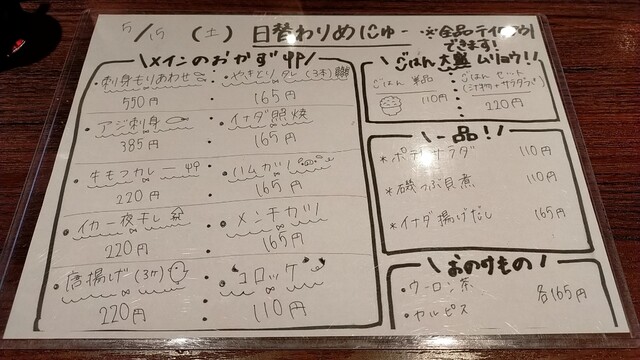 5/15 (土) 日替わりめにゅー ※全品テイクアウトできます!
\メインのおかず/
・刺身もりあわせ 550円
・やきとりタレ(3本) 165円
・アジ刺身 385円
・イナダ照焼 165円
・牛モツカレー 220円
・ハムカツ 165円
・イカ一夜干し 220円
・メンチカツ 165円
・唐揚げ(3ケ) 220円
・コロッケ 110円
\ごはん大盛ムリョウ!/
ごはん単品 110円
ごはんセット
220円
\一品!/
*ポテトサラダ 110円
*磯つぶ貝煮 110円
*イナダ揚げだし 165円
\おのみもの/
・ウーロン茶
・カルピス
各165円